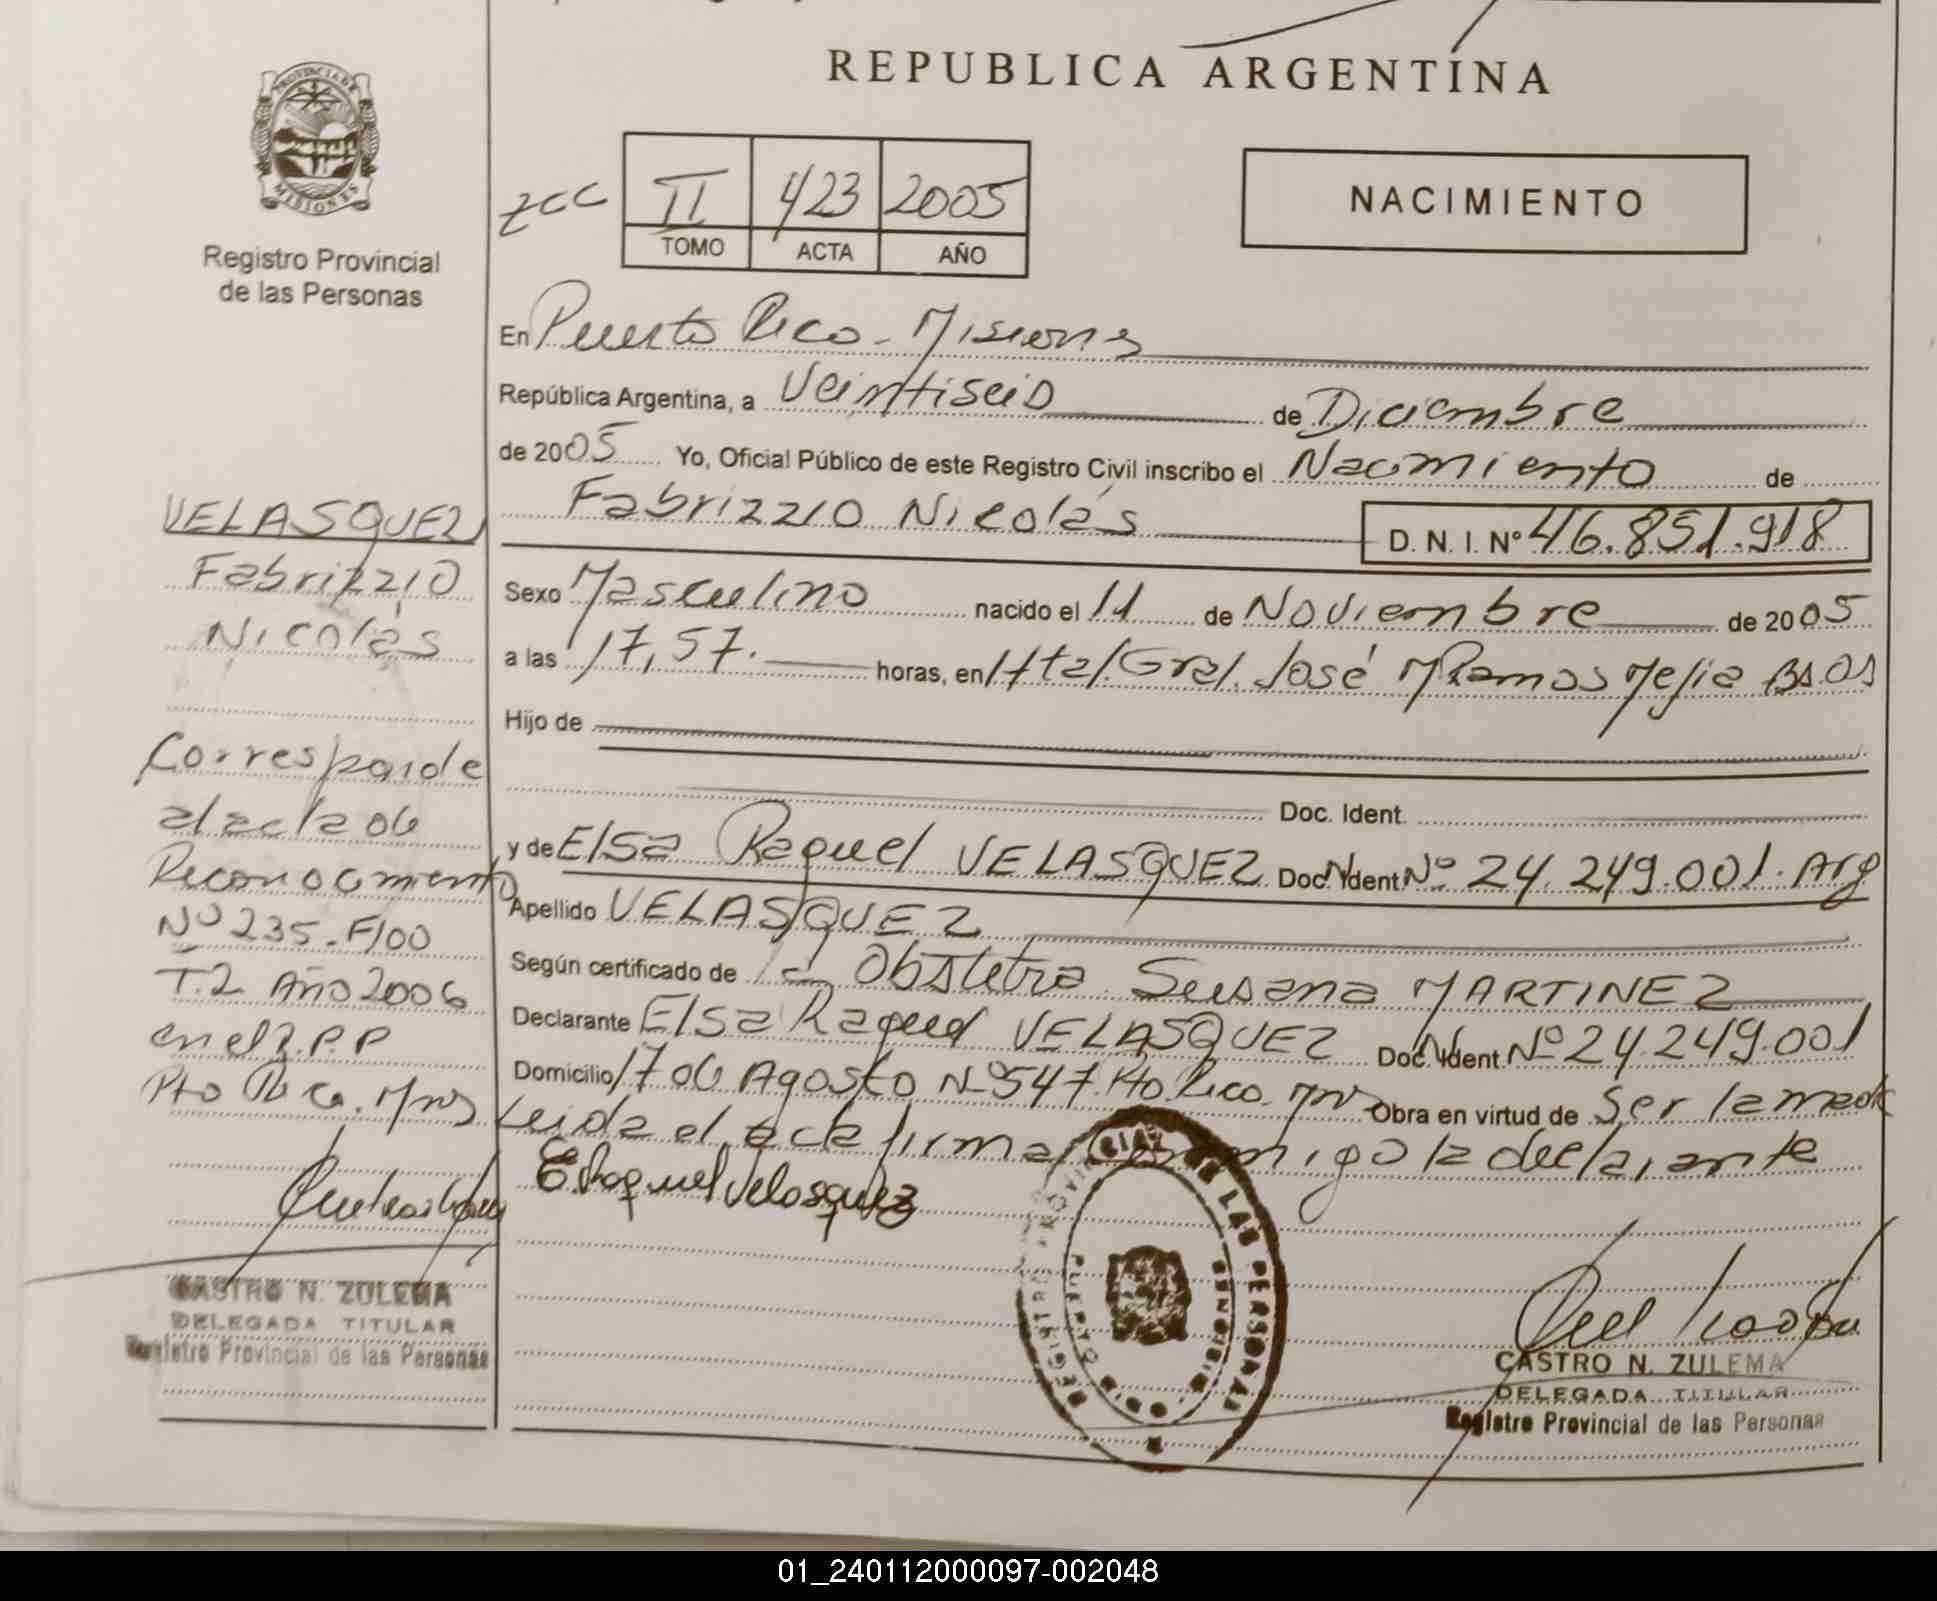 REPUBLICA ARGENTINA
PROVINCIA DE
MISIONES
Registro Provincial
de las Personas
II 423 2005
TOMO ACTA AÑO
NACIMIENTO
En Puerto Rico - Misiones
República Argentina, a Veintiseis de Diciembre
de 2005 Yo, Oficial Público de este Registro Civil inscribo el Nacimiento de
Fabrizzio Nicolás D. N. I. Nº 46.851.918
Sexo Masculino nacido el 11 de Noviembre de 2005
a las 17,57. horas, en Htal. Gral. José M Ramos Mejia Bs.As
Hijo de
Doc. Ident.
y de Elsa Raquel VELASQUEZ Doc. Ident Nº 24.249.001. Arg
Apellido VELASQUEZ
Según certificado de la Obstetra Susana MARTINEZ
Declarante Elsa Raquel VELASQUEZ Doc. Ident. Nº 24.249.001
Domicilio 17 de Agosto Nº 547. Pto Rico. Mns Obra en virtud de Ser la madre
Leida el acta firma conmigo la declarante
E. Raquel Velasquez
VELASQUEZ
Fabrizzio
Nicolás
Corresponde
al acta de
Reconocimiento
Nº 235 - F/00
T.2 Año 2006
en el R.P.P
Pto Rico. Mns
CASTRO N. ZULEMA
DELEGADA TITULAR
Registro Provincial de las Personas
REGISTRO PROVINCIAL DE LAS PERSONAS
PUERTO RICO
MISIONES
CASTRO N. ZULEMA
DELEGADA TITULAR
Registro Provincial de las Personas
01_240112000097-002048